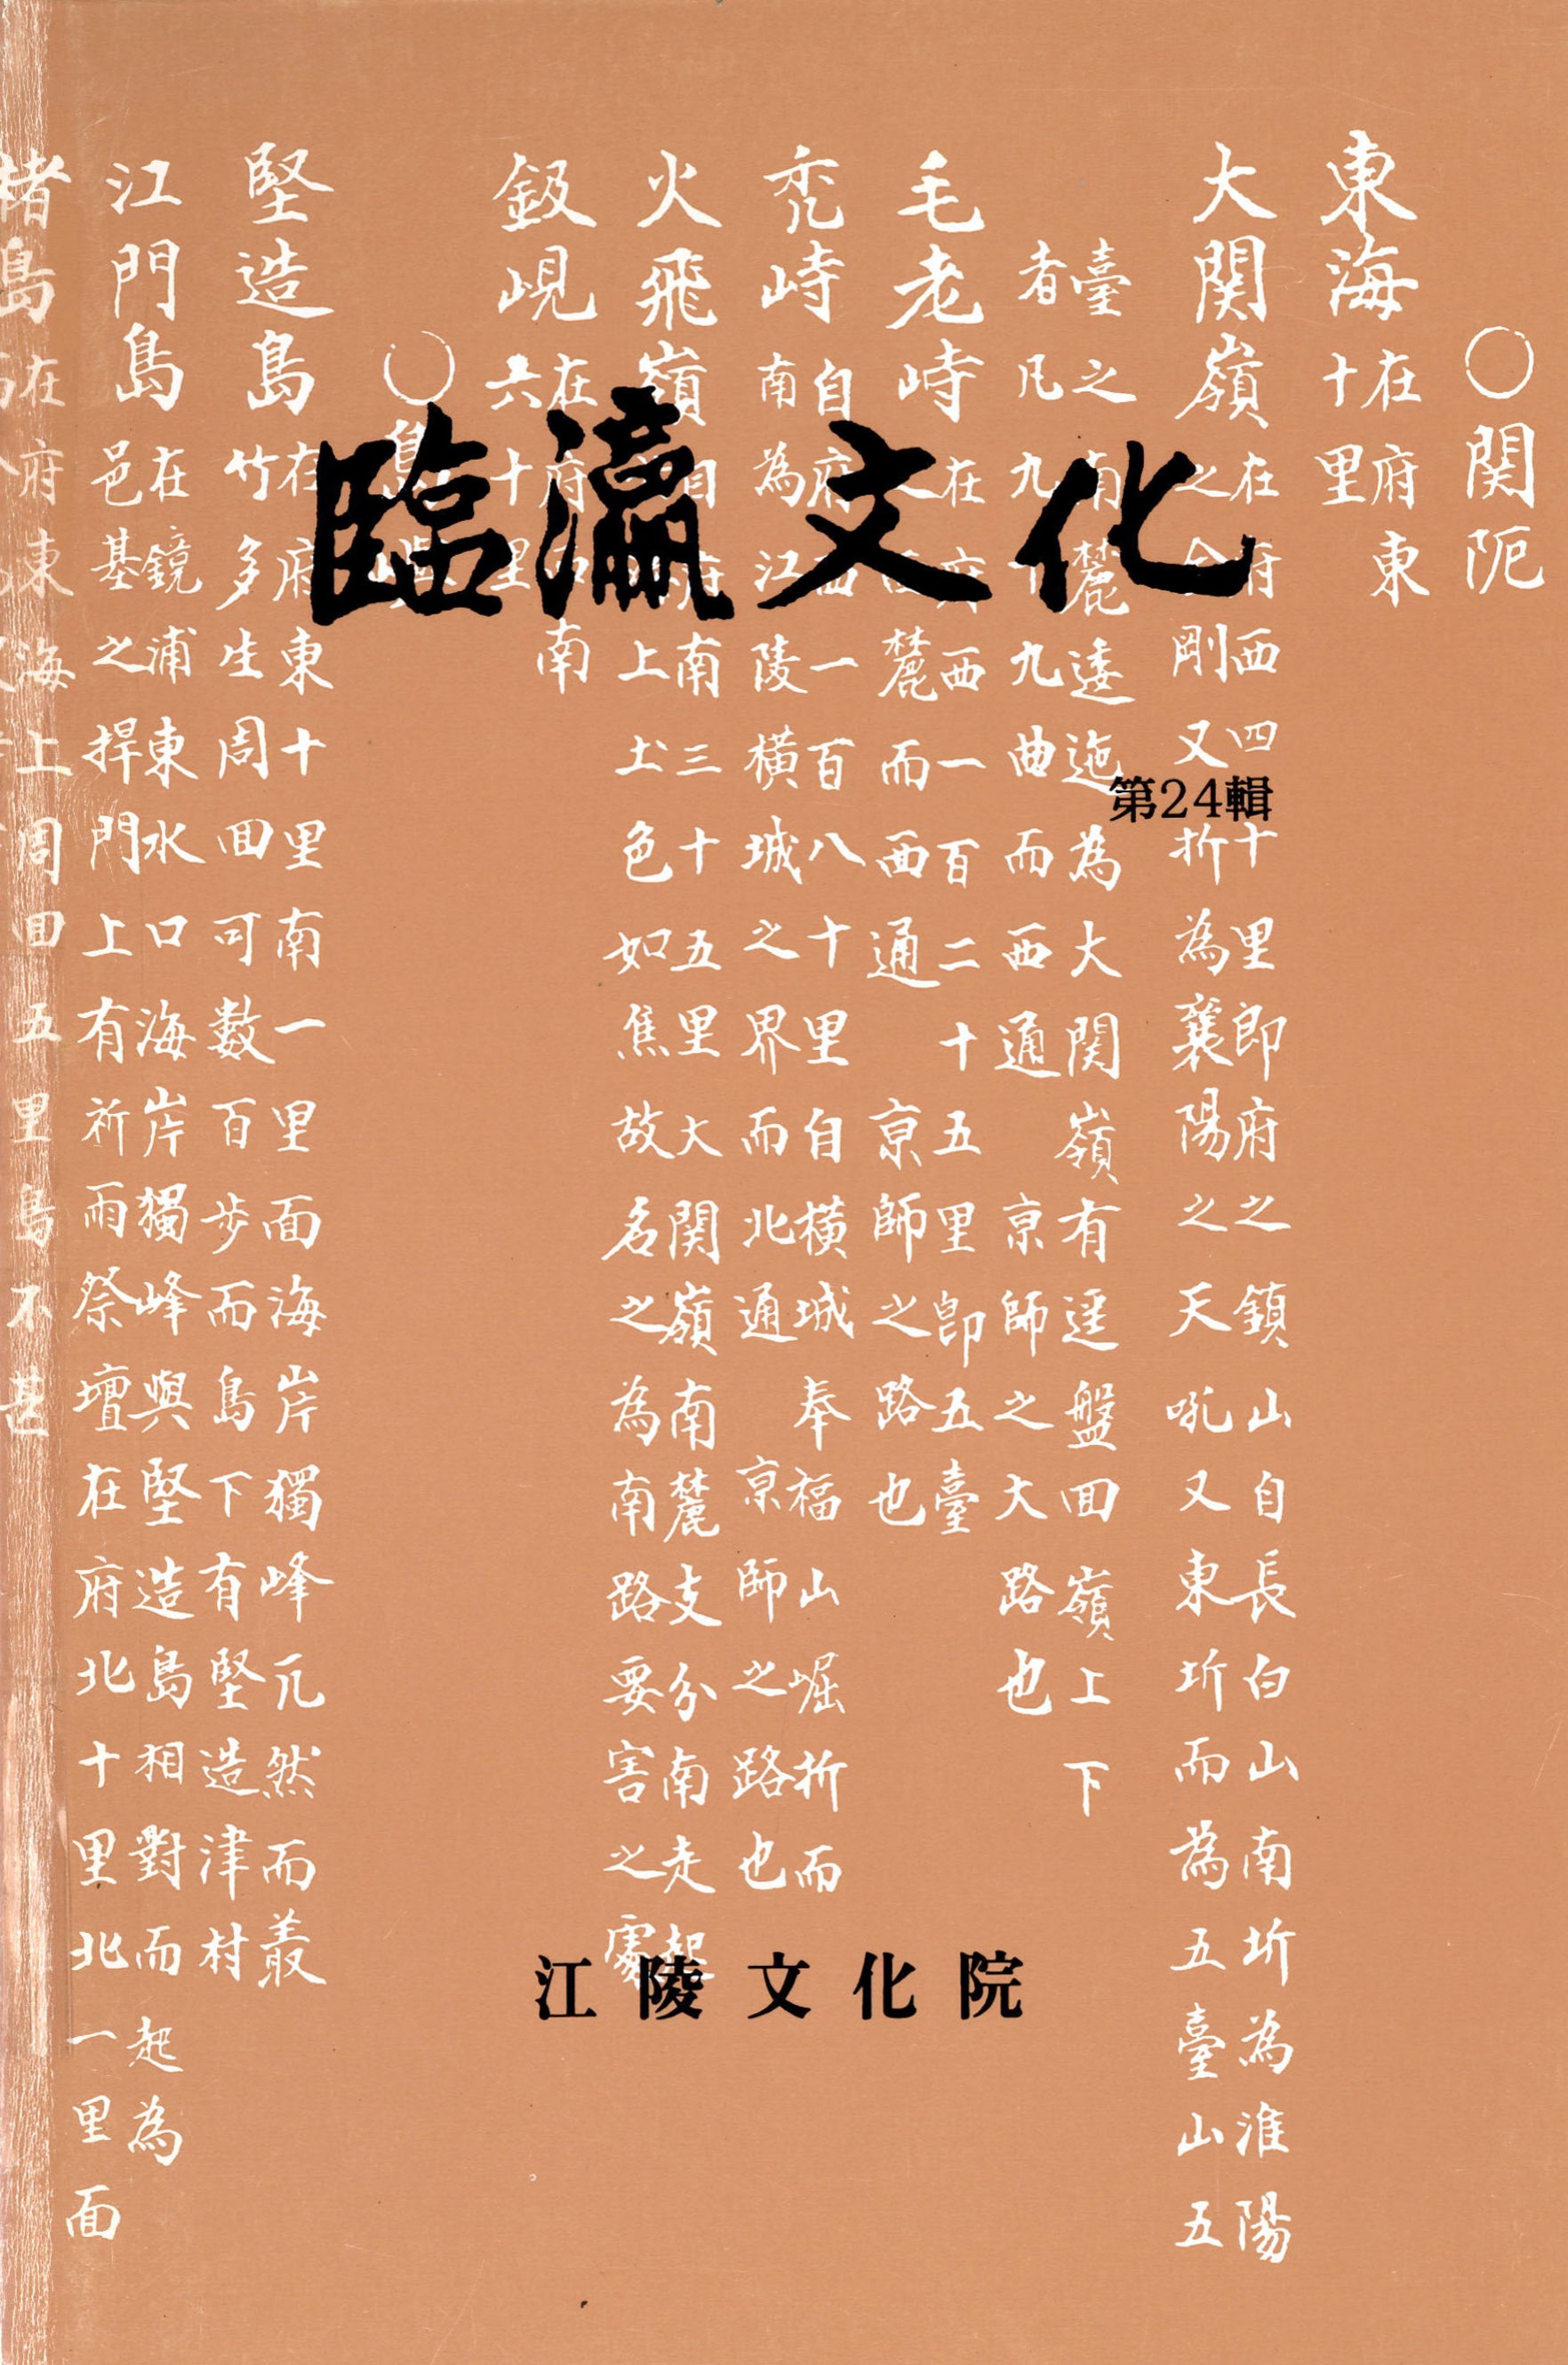 臨瀛文化
第24輯
江陵文化院
○関阨
東海
在府東
十里
大関嶺
在府西四十里即府之鎮山自長白山南圻為淮陽
之金剛又折為襄陽之天吼又東圻而為五臺山五
臺之南麓逶迤為大関嶺有逕盤回嶺上下
者凡九十九曲而西通京師之大路也
毛老峙
在府西一百二十五里卽五臺
之西麓而西通京師之路也
禿峙
自府西一百八十里自橫城奉福山崛折而
南為江陵橫城之界而北通京師之路也
火飛嶺
自府南三十五里大関嶺南麓支分南走起
上土色如焦故名之為南路要害之處
鈒峴
在府西南
六十里
○島嶼
堅造島
在府東十里南一里面海岸獨峰兀然而叢
竹多生周回可數百步而島下有堅造津村
江門島
在鏡浦東水口海岸獨峰與堅造島相對而起為
邑基之捍門上有祈雨祭壇在府北十里北一里面
楮島
在府東海上周回五里島不甚